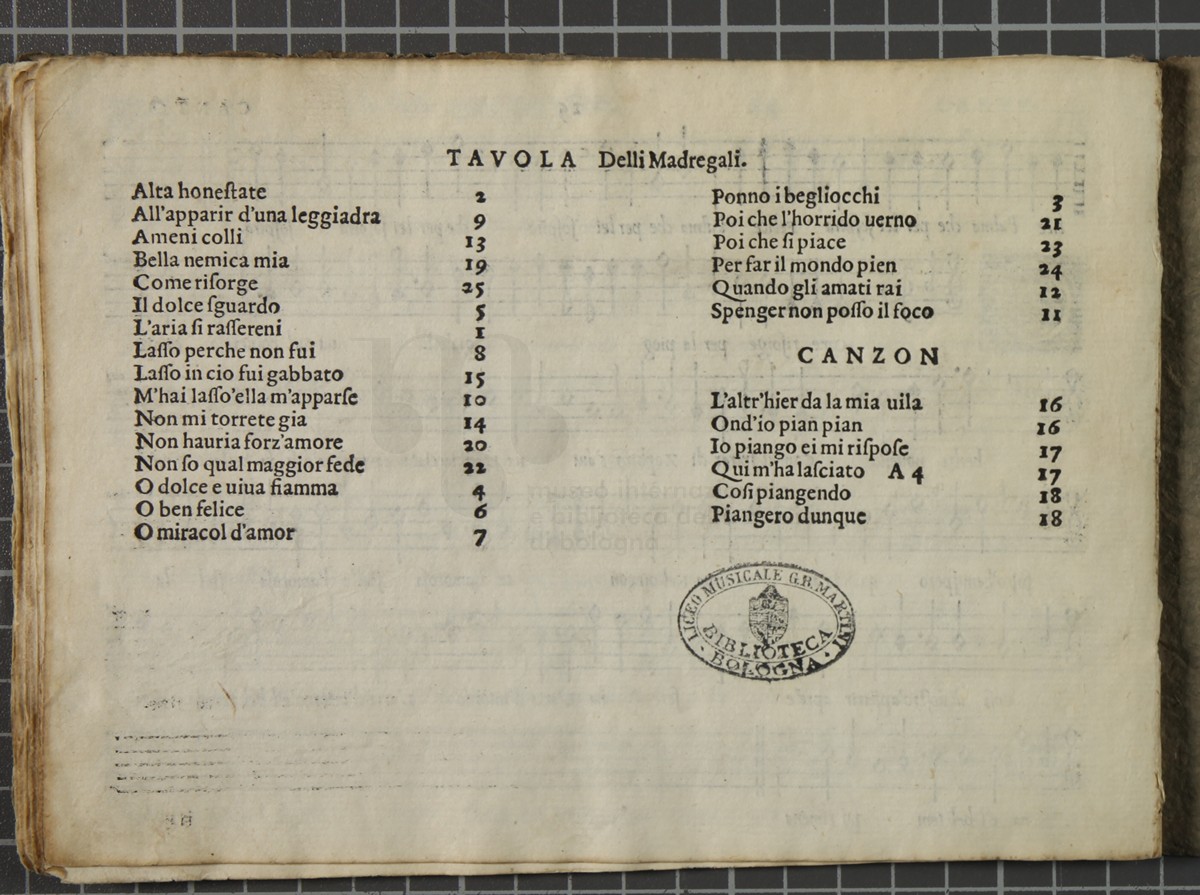 TAVOLA Delli Madregali.
Alta honeſtate 2
All'apparir d'una leggiadra 9
Ameni colli 13
Bella nemica mia 19
Come riſorge 25
Il dolce ſguardo 5
L'aria ſi raſſereni 1
Laſſo perche non fui 8
Laſſo in cio fui gabbato 15
M'hai laſſo'ella m'apparſe 10
Non mi torrete gia 14
Non hauria forz'amore 20
Non ſo qual maggior fede 22
O dolce e uiua fiamma 4
O ben felice 6
O miracol d'amor 7
Ponno i begliocchi 3
Poi che l'horrido uerno 21
Poi che ſi piace 23
Per far il mondo pien 24
Quando gli amati rai 12
Spenger non poſſo il foco 11
CANZON
L'altr'hier da la mia uila 16
Ond'io pian pian 16
Io piango ei mi riſpoſe 17
Qui m'ha laſciato A 4 17
Coſi piangendo 18
Piangero dunque 18
LICEO MUSICALE G.B. MARTINI
BIBLIOTECA
BOLOGNA